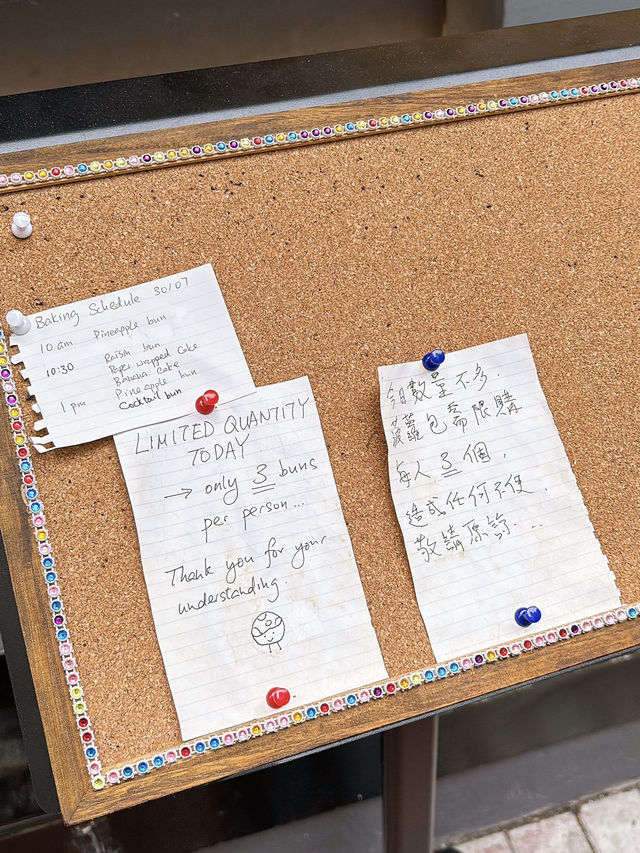 Baking Schedule 30/07
10 am Pineapple bun
10:30 Raisin bun
Paper wrapped cake
Banana Cake
1 pm Pineapple bun
Cocktail bun
LIMITED QUANTITY
TODAY
→ only 3 buns
per person...
Thank you for your
understanding.
今日數量不多.
菠蘿包需限購
每人 3 個,
造成任何不便.
敬請原諒...